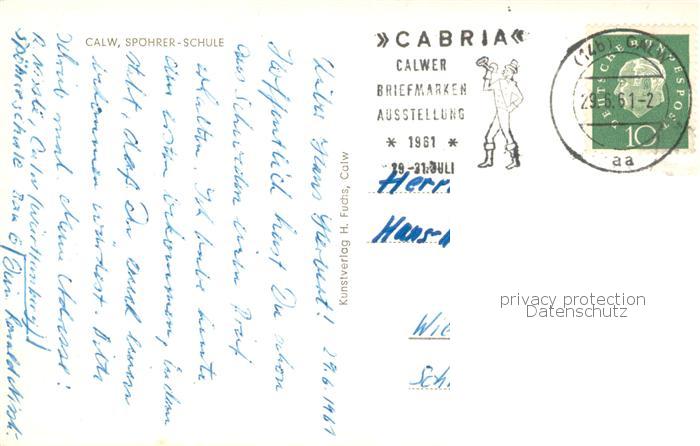 CALW, SPÖHRER-SCHULE
29.6.1961
Lieber Hans Herbert!
Hoffentlich hast Du schon
aus Schweden einen Brief
erhalten. Ich habe heute
den ersten bekommen, in dem
steht, daß Du auch einen
bekommen würdest. Bitte
schreib mal. Meine Adresse:
R. Calw (Württemberg)
Spöhrerschule Bau 6 Dein
Kunstverlag H. Fuchs, Calw
»CABRIA«
CALWER
BRIEFMARKEN
AUSSTELLUNG
* 1961 *
29.-31. JULI
(14b) CALW
29.6.61-2
aa
DEUTSCHE BUNDESPOST
10
Herr
Hans-
Wie
Sch
privacy protection
Datenschutz